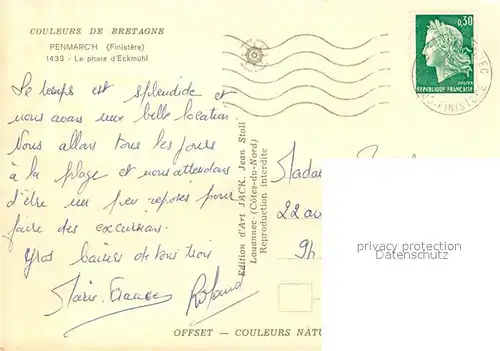 COULEURS DE BRETAGNE
PENMARC'H (Finistère)
1433 - Le phare d'Eckmühl
Le temps est splendide et
nous avons une belle location.
Nous allons tous les jours
à la plage et nous attendons
d'être un peu reposés pour
faire des excursions.
Gros baisers de tous trois
Marie-France Roland
Edition d'Art JACK, Jean Stoll
Louannec (Côtes-du-Nord)
Reproduction interdite
0,30
POSTES
REPUBLIQUE FRANÇAISE
FINISTERE
Madame
22 av
94
privacy protection
Datenschutz
OFFSET — COULEURS NATU